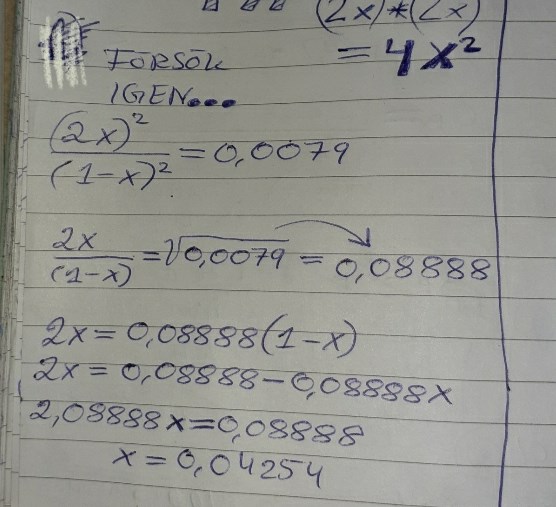 (2x)*(2x)
= 4x²
FÖRSÖK
IGEN...
(2x)²/(1-x)² = 0,0079
2x/(1-x) = √0,0079 = 0,08888
2x = 0,08888(1-x)
2x = 0,08888-0,08888x
2,08888x=0,08888
x = 0,04254